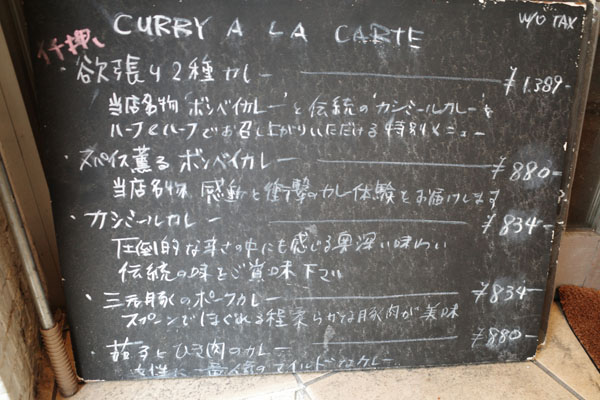 CURRY A LA CARTE
W/O TAX
イチ押し
・欲張り2種カレー ¥1.389-
当店名物"ボンベイカレー"と伝統の"カシミールカレー"を
ハーフ&ハーフでお召し上がりいただける特別メニュー
・スパイス薫るボンベイカレー ¥880-
当店名物 感動と衝撃のカレー体験をお届けします
・カシミールカレー ¥834-
圧倒的な辛さの中にも感じる奥深い味わい
伝統の味をご賞味下さい
・三元豚のポークカレー ¥834-
スプーンでほぐれる程柔らかな豚肉が美味
・茄子とひき肉のカレー ¥880-
女性に一番人気のマイルドなカレー